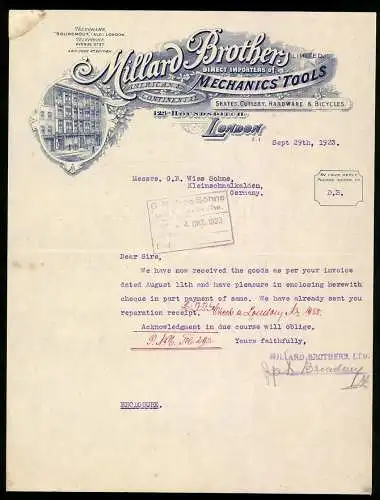 TELEGRAMS,
LONDON.
TELEPHONE
AVENUE
Millard Brothers LIMITED
DIRECT IMPORTERS OF
AMERICAN &
CONTINENTAL
MECHANICS' TOOLS
SKATES, CUTLERY, HARDWARE & BICYCLES.
HOUNDSDITCH,
London
E. 1
Sept 29th, 1923.
IN YOUR REPLY
PLEASE REFER TO
D.R.
Messrs. G.R. Wiss Sohne,
Kleinschmalkalden,
Germany.
Sohne
4. OKT. 1923
Dear Sirs,
We have now received the goods as per your invoice
dated August 11th and have pleasure in enclosing herewith
cheque in part payment of same. We have already sent
you reparation receipt.
Check a London
Acknowledgment in due course will oblige,
Yours faithfully,
MILLARD BROTHERS, LTD.
ENCLOSURE.